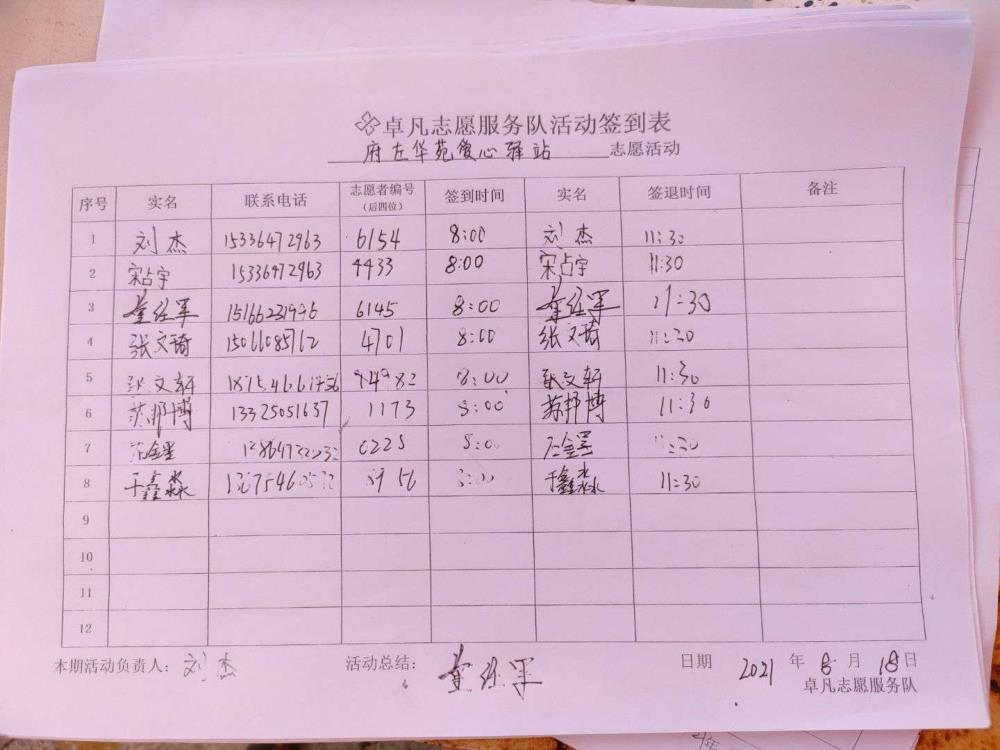 卓凡志愿服务队活动签到表
府左华苑爱心驿站 志愿活动
序号 实名 联系电话 志愿者编号（后四位） 签到时间 实名 签退时间 备注
1 刘杰 15336472963 6154 8:00 刘杰 11:30
2 宋占宇 15336472963 4433 8:00 宋占宇 11:30
3 董经军 6145 8:00 董经军 11:30
4 张文琦 15066085762 4701 8:00 张文琦 11:30
5 张文轩 8:00 张文轩 11:30
6 苏邦博 13325051637 1173 8:00 苏邦博 11:30
7 0225
8 于鑫淼 于鑫淼 11:30
9
10
11
12
本期活动负责人：刘杰 活动总结：董经军 日期 2021 年 8 月 18 日
卓凡志愿服务队